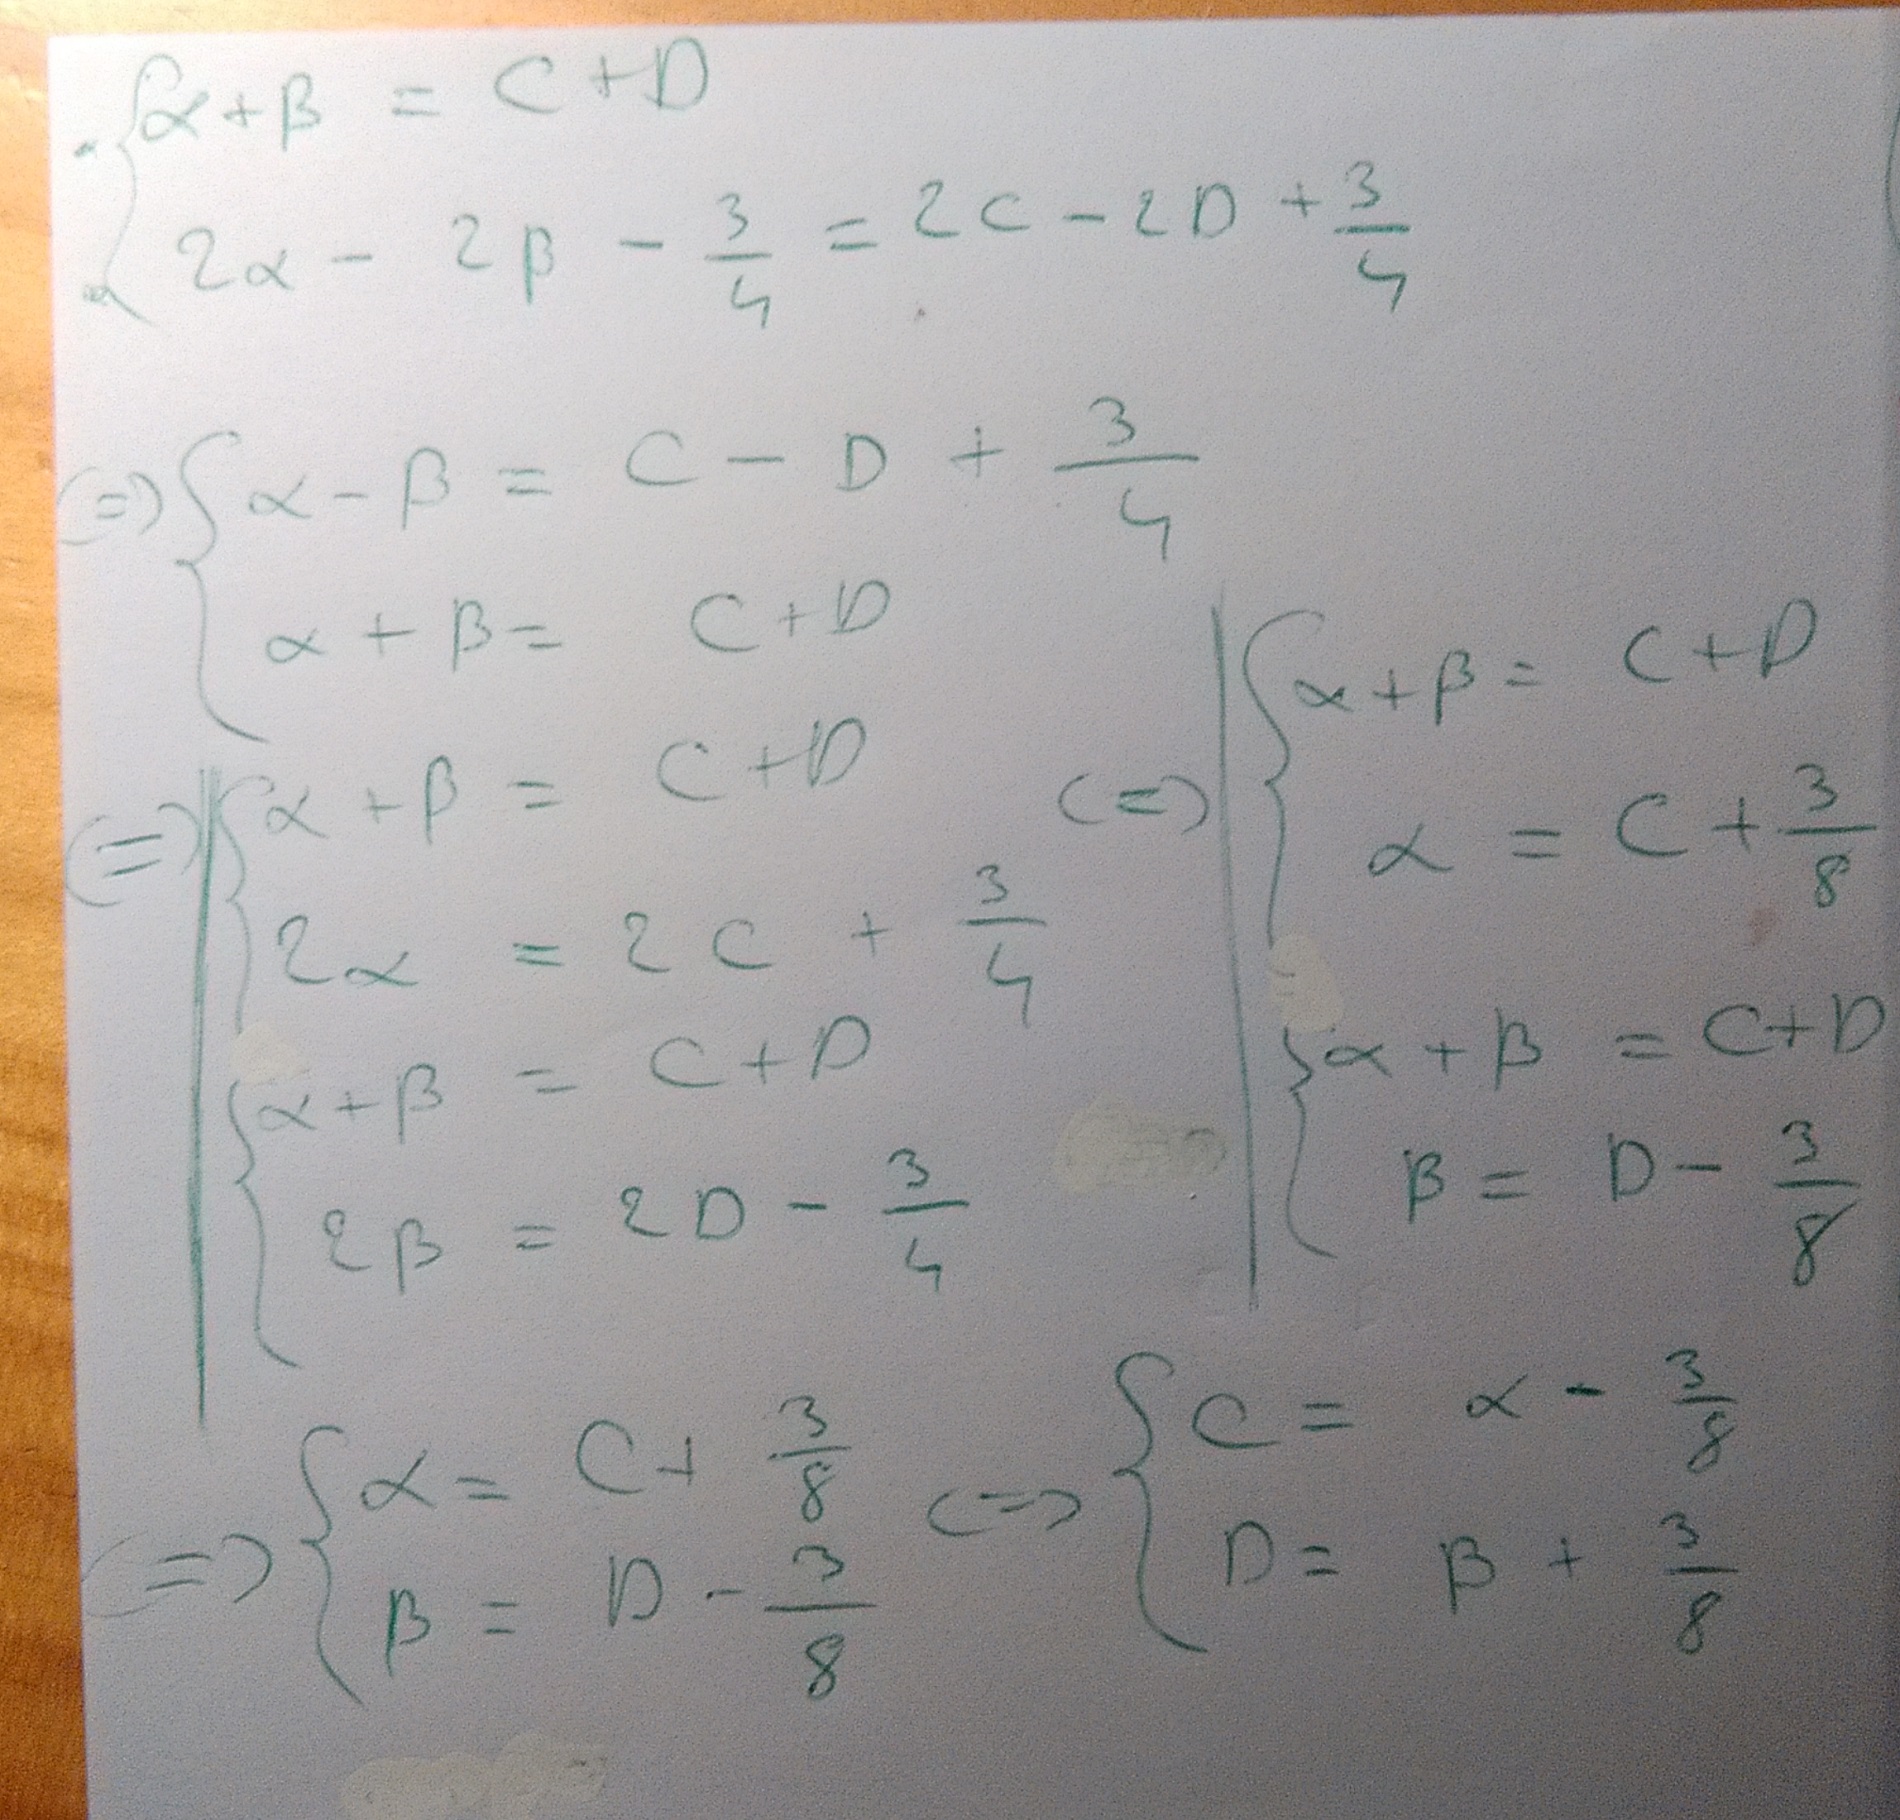 α + β = C + D
2α - 2β - 3/4 = 2C - 2D + 3/4
(=) α - β = C - D + 3/4
α + β = C + D
(=) α + β = C + D
2α = 2C + 3/4
α + β = C + D
2β = 2D - 3/4
(=) α + β = C + D
α = C + 3/8
α + β = C + D
β = D - 3/8
(=) α = C + 3/8
β = D - 3/8
(=) C = α - 3/8
D = β + 3/8